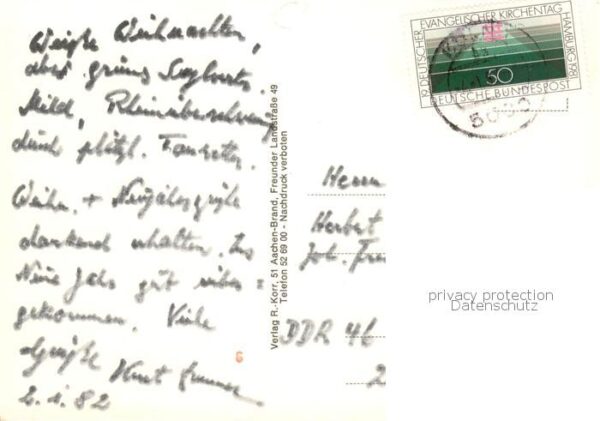 Weiße Weihnachten,
aber grünes
Mild, Rheinüberschwemmung
durch plötzl. Tauwetter.
Weihn. + Neujahrsgrüße
dankend erhalten. Ins
Neue Jahr gut
gekommen. Viele
Grüße Kurt
2.1.82
6
Verlag R.-Korr, 51 Aachen-Brand, Freunder Landstraße 49
Telefon 52 69 00 - Nachdruck verboten
19. DEUTSCHER EVANGELISCHER KIRCHENTAG HAMBURG 1981
50
DEUTSCHE BUNDESPOST
Herrn
Herbert
Joh.
DDR 46
2
privacy protection
Datenschutz